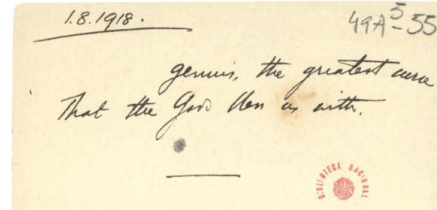 1.8.1918.
49A⁵-55
genius, the greatest curse
That the Gods bless us with.
BIBLIOTECA NACIONAL